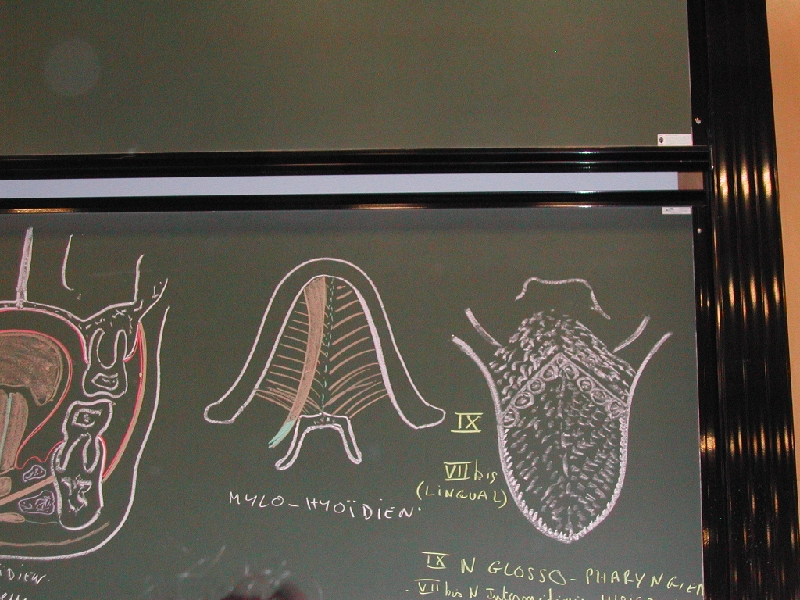 IX
VII bis
(LINGUAL)
MYLO-HYOÏDIEN.
IX N GLOSSO-PHARYNGIEN
VII bis N Intermédiaire